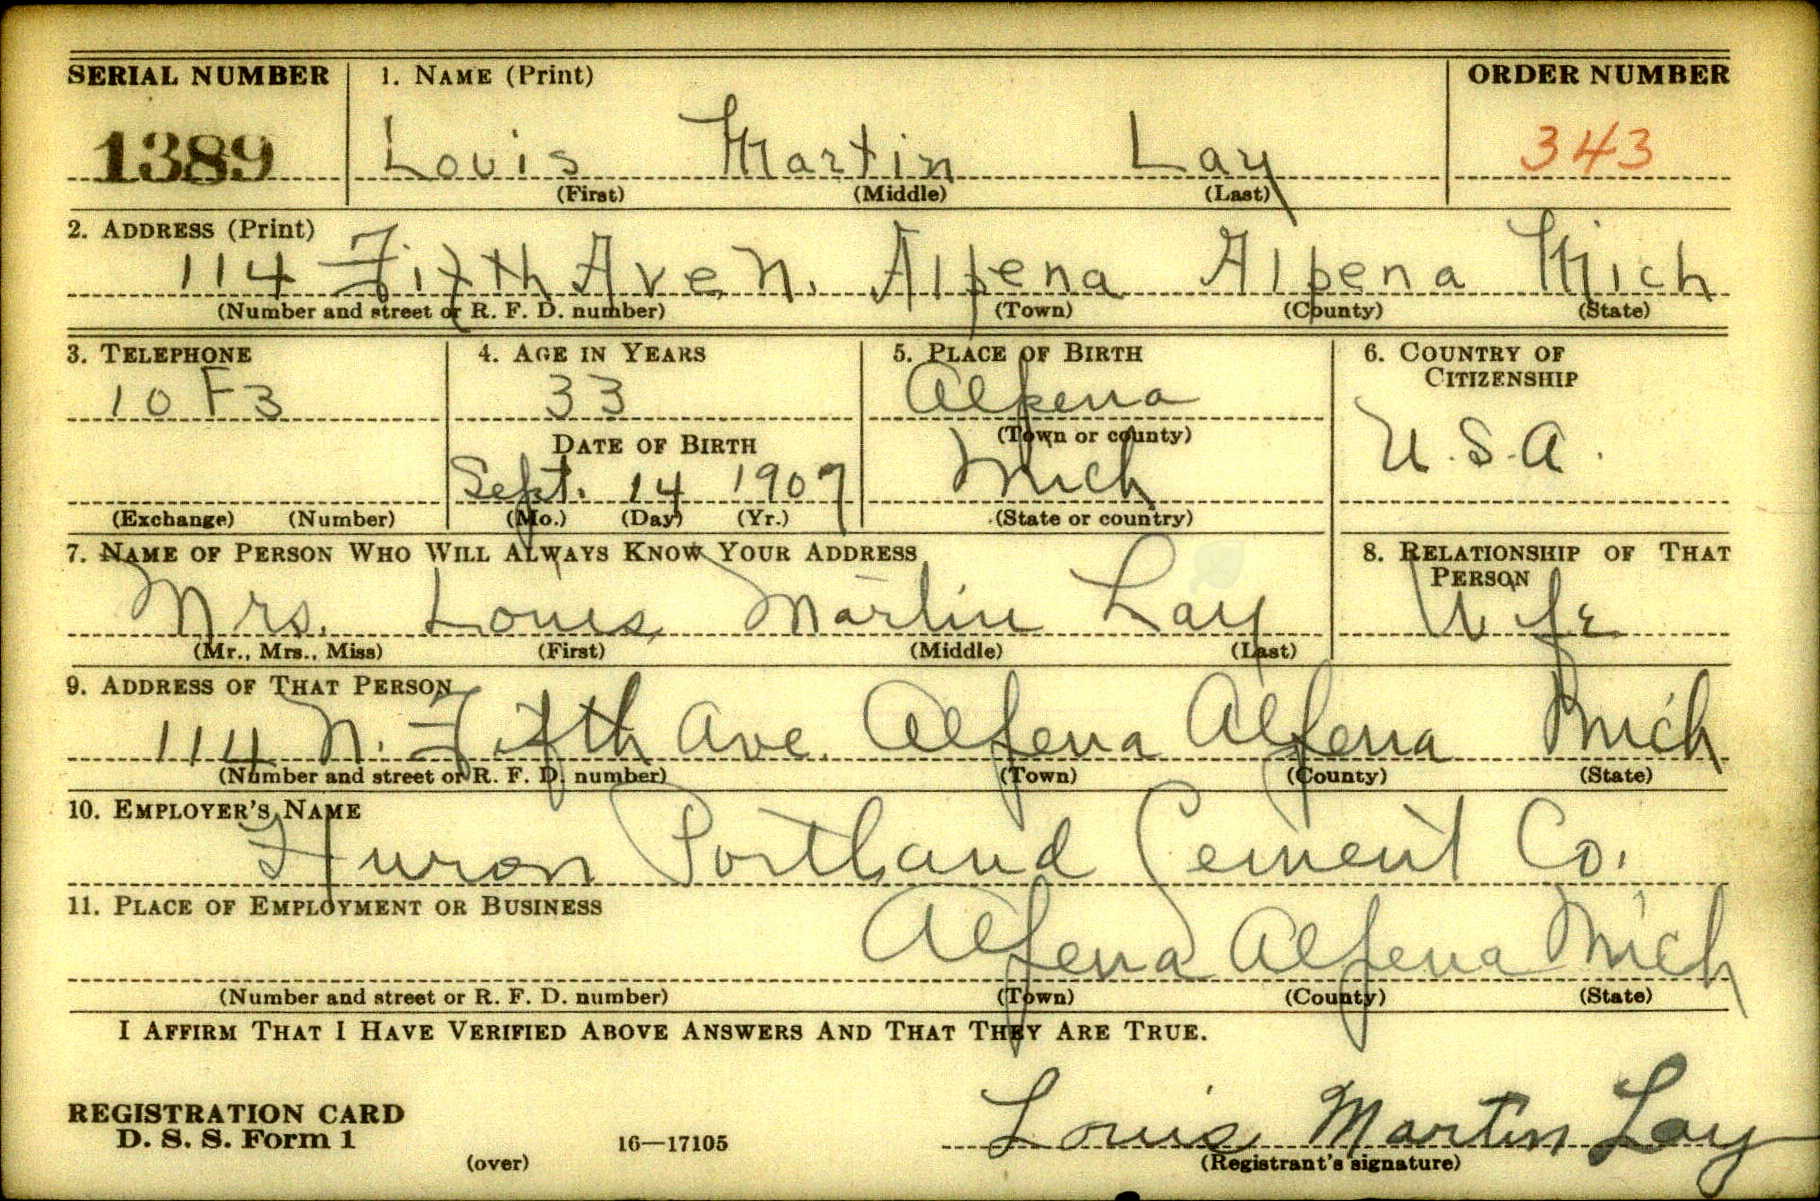 SERIAL NUMBER 1. NAME (Print) ORDER NUMBER
1389 Louis Martin Lay 343
(First) (Middle) (Last)
2. ADDRESS (Print)
114 Fifth Ave N. Alpena Alpena Mich
(Number and street or R. F. D. number) (Town) (County) (State)
3. TELEPHONE 4. AGE IN YEARS 5. PLACE OF BIRTH 6. COUNTRY OF
CITIZENSHIP
10 F3 33 Alpena
(Town or county)
DATE OF BIRTH U.S.A.
Sept. 14 1907 Mich
(Exchange) (Number) (Mo.) (Day) (Yr.) (State or country)
7. NAME OF PERSON WHO WILL ALWAYS KNOW YOUR ADDRESS 8. RELATIONSHIP OF THAT
PERSON
Mrs. Louis Martin Lay Wife
(Mr., Mrs., Miss) (First) (Middle) (Last)
9. ADDRESS OF THAT PERSON
114 N. Fifth Ave. Alpena Alpena Mich
(Number and street or R. F. D. number) (Town) (County) (State)
10. EMPLOYER'S NAME
Huron Portland Cement Co.
11. PLACE OF EMPLOYMENT OR BUSINESS
Alpena Alpena Mich
(Number and street or R. F. D. number) (Town) (County) (State)
I AFFIRM THAT I HAVE VERIFIED ABOVE ANSWERS AND THAT THEY ARE TRUE.
REGISTRATION CARD
D. S. S. Form 1 16—17105 Louis Martin Lay
(over) (Registrant's signature)